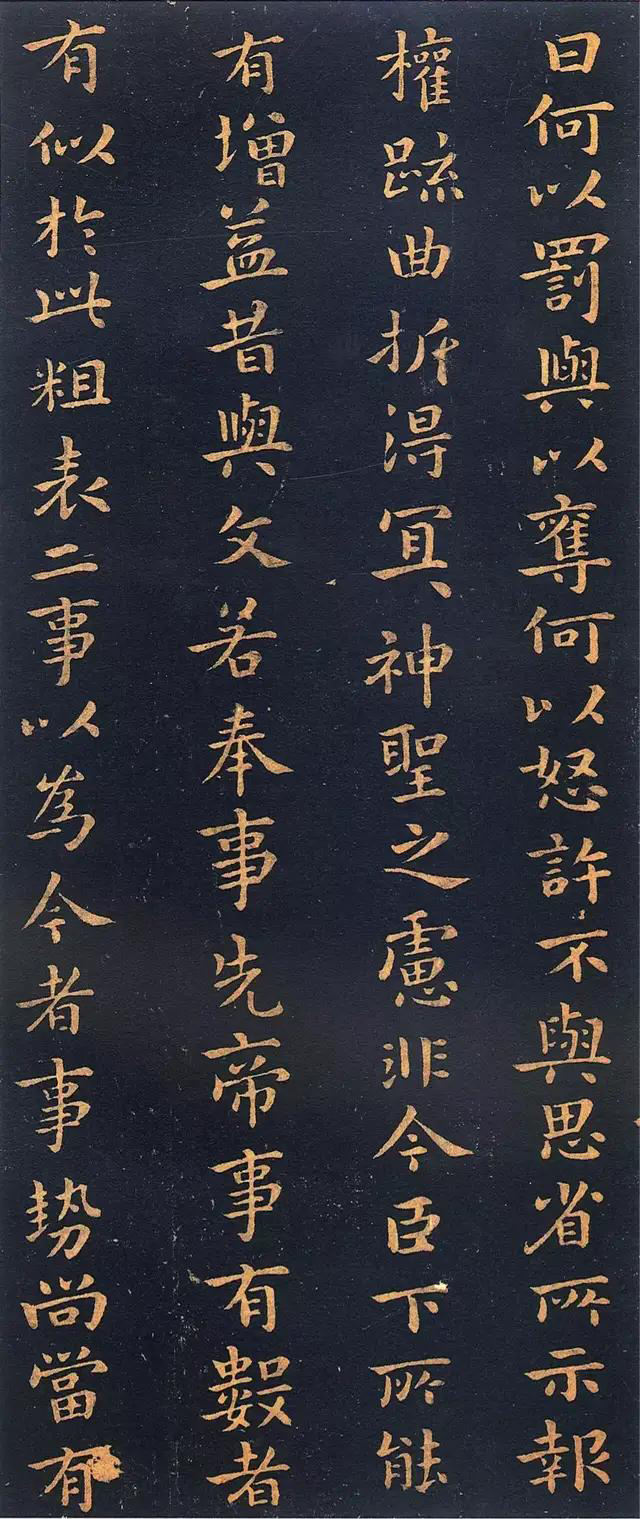 曰何以罰與以奪何以怒許不與思省所示報
權疏曲折得冝神聖之慮非今臣下所能
有增益昔與文若奉事先帝事有數者
有似於此粗表二事以為今者事勢尚當有